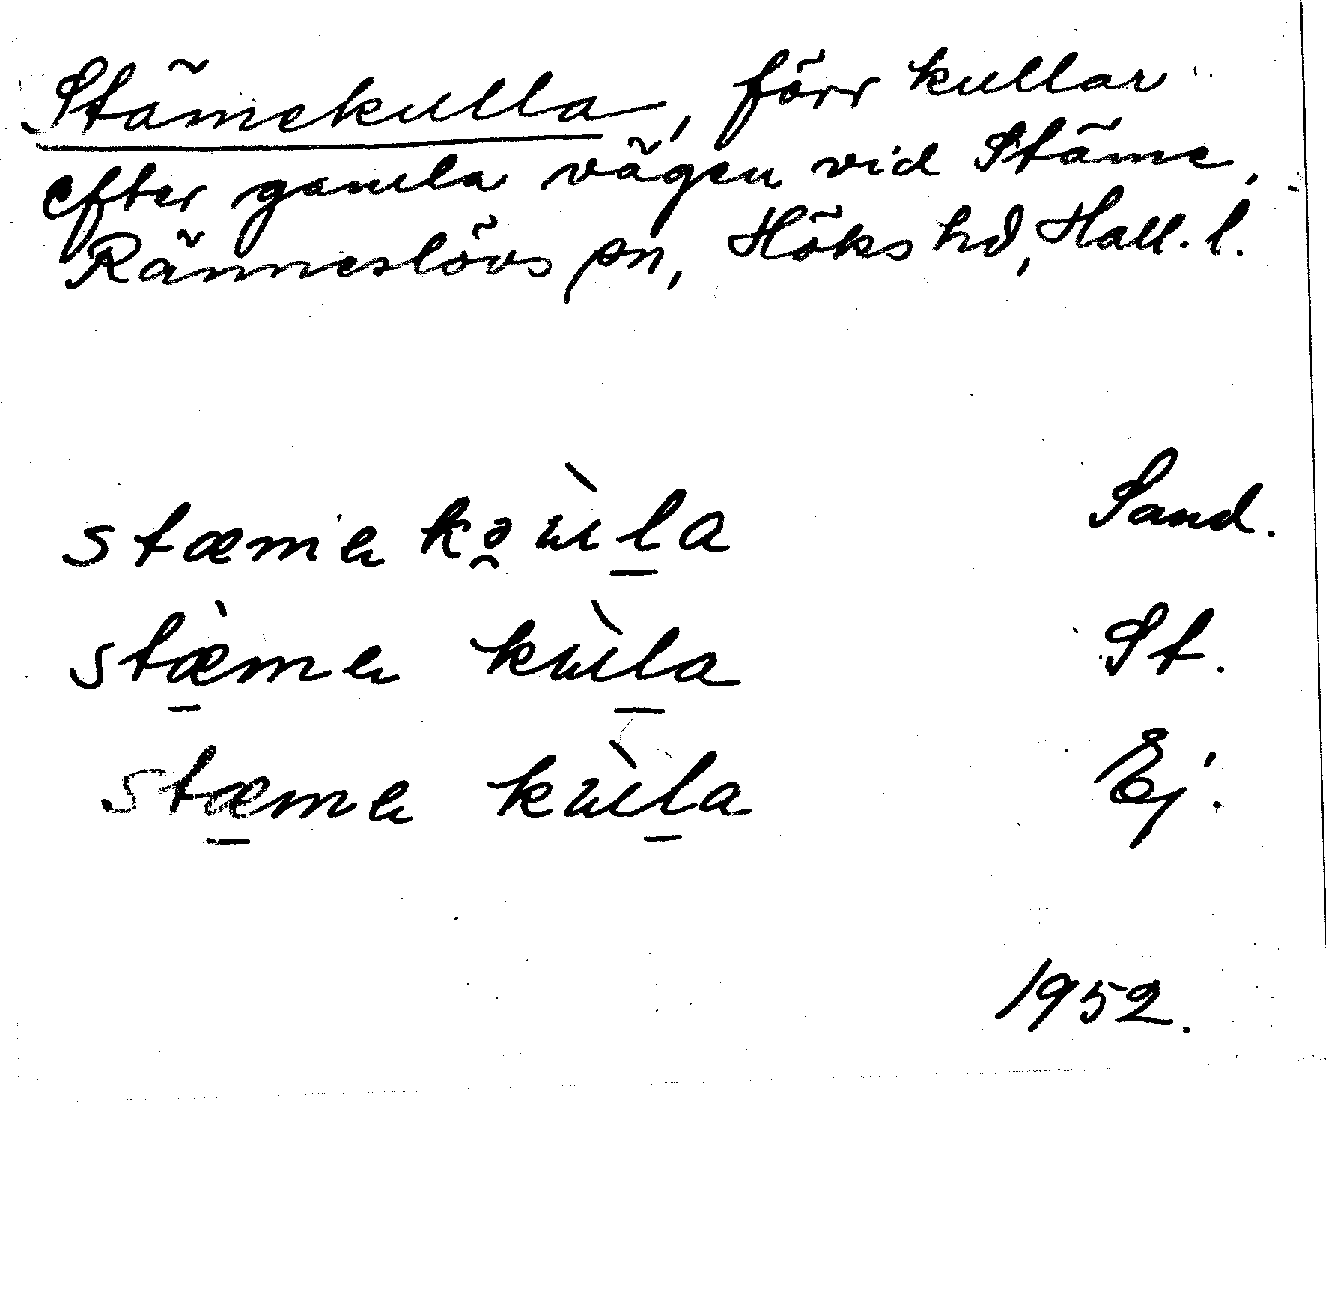 Stämekulla, förr kullar
efter gamla vägen vid Stäme,
Ränneslövs sn, Höks hd, Hall. l.
Sand.
stæma kùla St.
stæma kùla Ej.
1952.